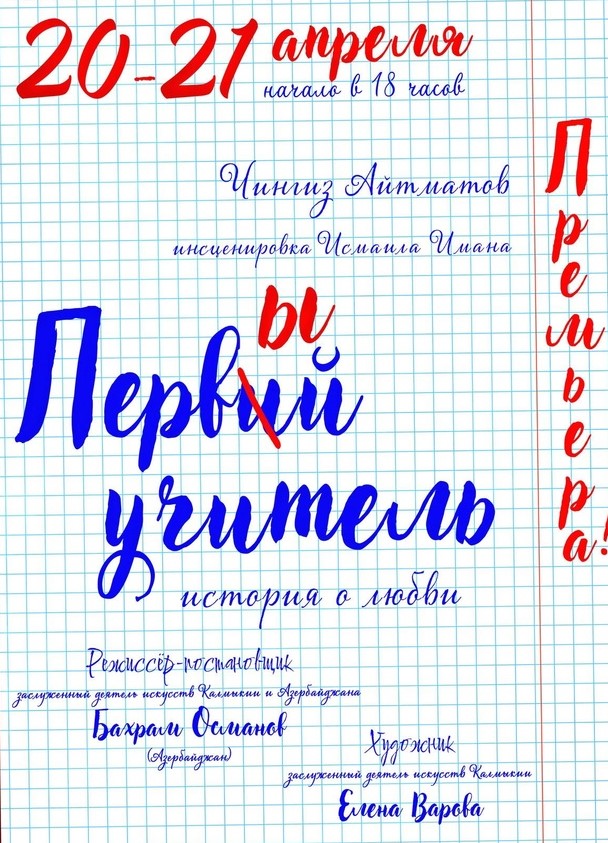 20-21 апреля
начало в 18 часов
Премьера!
Чингиз Айтматов
инсценировка Исмаила Имана
ы
Первий
учитель
история о любви
Режиссёр-постановщик
заслуженный деятель искусств Калмыкии и Азербайджана
Бахрам Османов
(Азербайджан)
Художник
заслуженный деятель искусств Калмыкии
Елена Варова